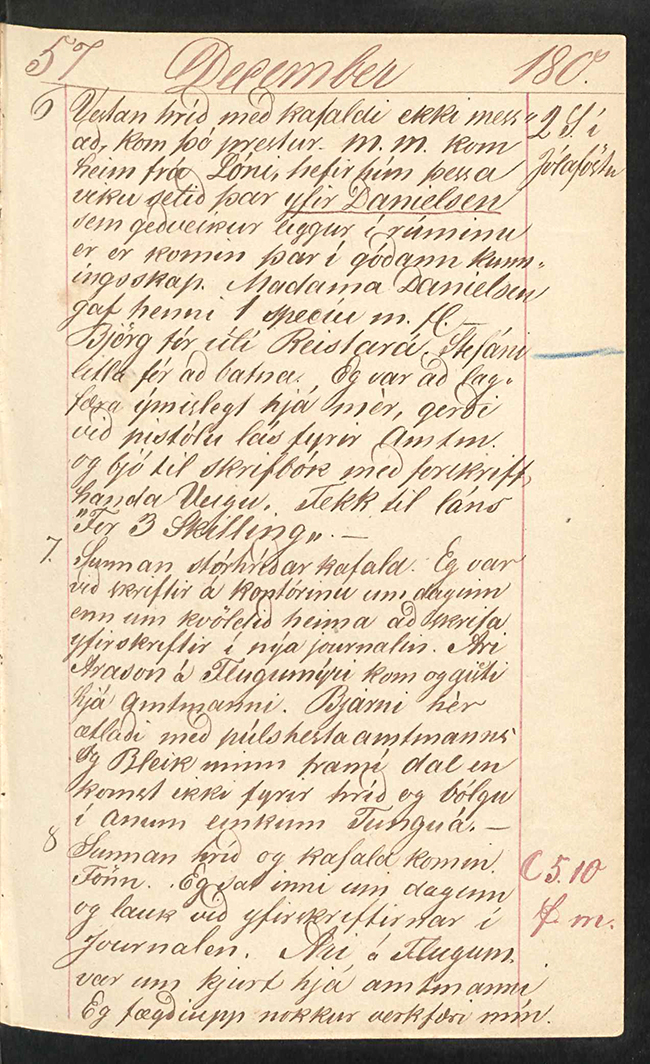 57 December 180?.
6 Vestan hríð með kafaldi ekki mess„ 2 S í
að, kom þó prestur. m. m. kom Jólaföstu
heim frá Lóni, hefir hún þessa
viku setið þar yfir Danielsen
sem geðveikur liggur í rúminu
er er komin þar í góðann kunn„
ingsskap. Madama Danielsen
gaf henni 1 speciu m. fl.
Björg fór útí Reistará, Stefáni
litla fer að batna. Eg var að lag„
færa ýmislegt hjá mér, gerði
við pistólu lás fyrir Amtm.
og bjó til skrifbók með forskrift,
handa Veigu. Fékk til láns
"For 3 Skilling„. —
7. Sunnan stórhríðar kafald. Eg var
við skriftir á kontórinu um daginn
enn um kvöldið heima að skrifa
yfirskriftir í nýa journalin. Ari
Arason á Flugumýri kom og gisti
hjá Amtmanni. Bjarni hér
ætlaði með púlshesta amtmanns
og Bleik minn frami dal en
komst ekki fyrir hríð og bólgu
í ánum einkum Tunguá. —
8 Sunnan hríð og kafald komin
Fönn. Eg sat inni um daginn ☾ 5.10
og lauk við yfirskriftirnar í f. m.
Journalen. Ari á Flugum.
var um kjurt hjá amtmanni
Eg fægði upp nokkur verkfæri mín.